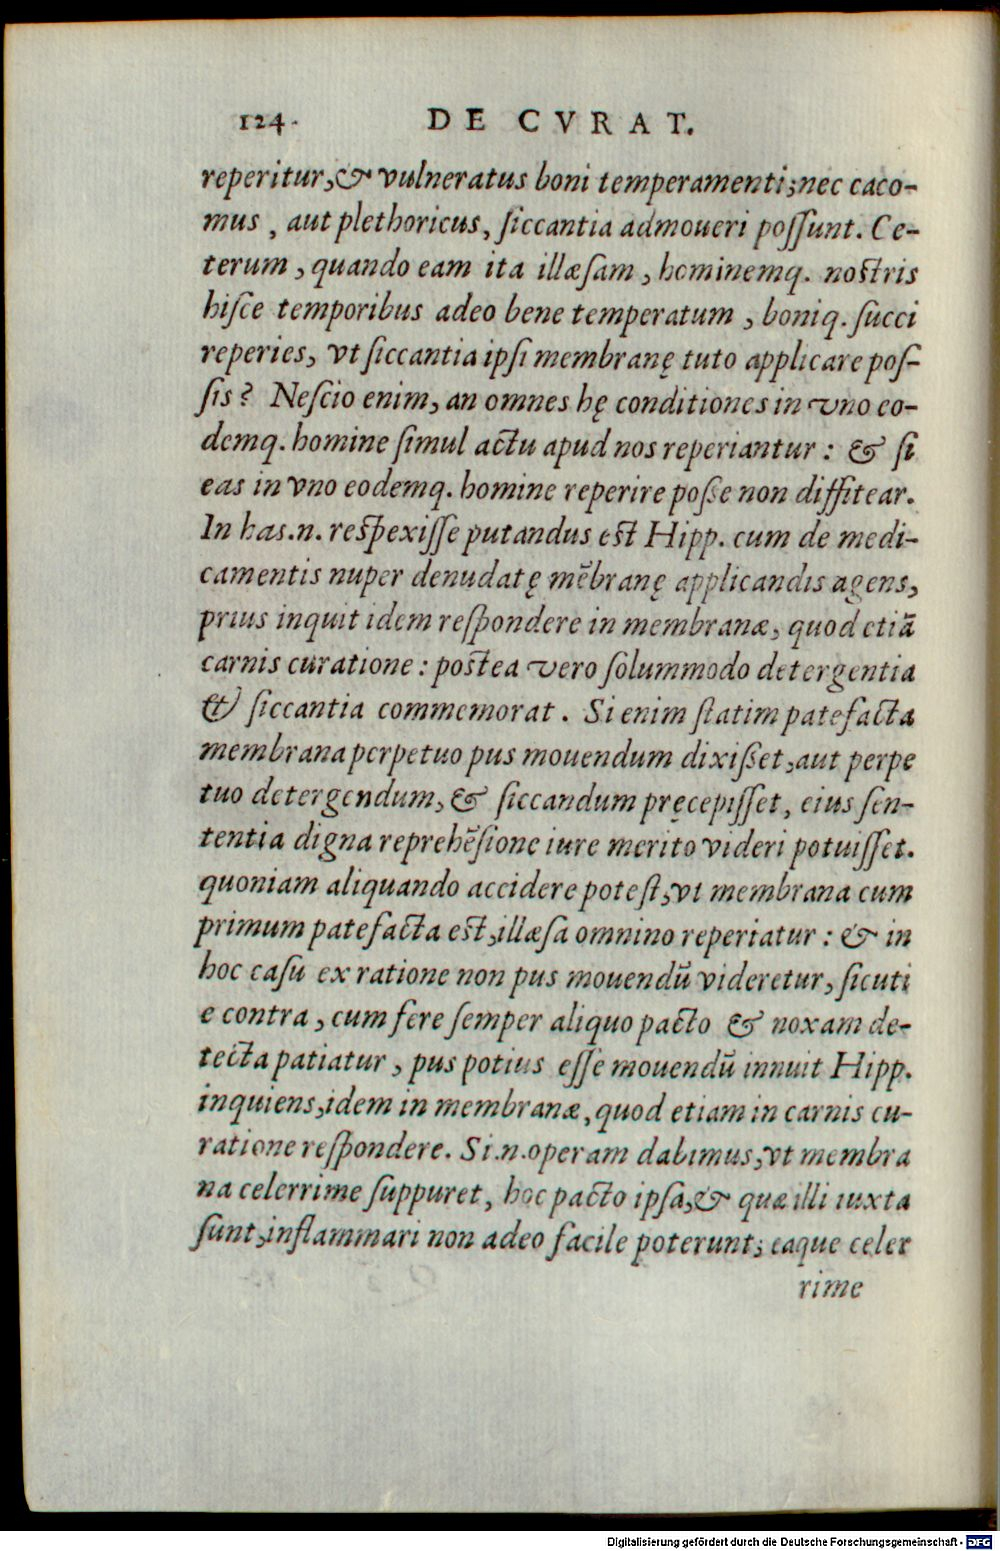 124. DE CVRAT.
reperitur, & vulneratus boni temperamenti; nec caco-
mus, aut plethoricus, ſiccantia admoueri poſſunt. Ce-
terum, quando eam ita illæſam, hominemq. nostris
hiſce temporibus adeo bene temperatum, boniq. ſucci
reperies, vt ſiccantia ipſi membranę tuto applicare poſ-
ſis? Neſcio enim, an omnes hę conditiones in vno eo-
demq. homine ſimul actu apud nos reperiantur: & ſi
eas in vno eodemq. homine reperire poße non diffitear.
In has .n. reſpexiſſe putandus est Hipp. cum de medi-
camentis nuper denudatę mēbranę applicandis agens,
prius inquit idem reſpondere in membranæ, quod etiā
carnis curatione: postea vero ſolummodo detergentia
& ſiccantia commemorat. Si enim ſtatim patefacta
membrana perpetuo pus mouendum dixißet, aut perpe
tuo detergendum, & ſiccandum pręcepiſſet, eius ſen-
tentia digna reprehēſione iure merito videri potuiſſet.
quoniam aliquando accidere poteſt, vt membrana cum
primum patefacta est, illæſa omnino reperiatur: & in
hoc caſu ex ratione non pus mouendū videretur, ſicuti
e contra, cum fere ſemper aliquo pacto & noxam de-
tecta patiatur, pus potius eſſe mouendū innuit Hipp.
inquiens, idem in membranæ, quod etiam in carnis cu-
ratione reſpondere. Si .n. operam dabimus, vt membra
na celerrime ſuppuret, hoc pacto ipſa, & quæ illi iuxta
ſunt, inflammari non adeo facile poterunt; eaque celer
rime
Digitalisierung gefördert durch die Deutsche Forschungsgemeinschaft - DFG